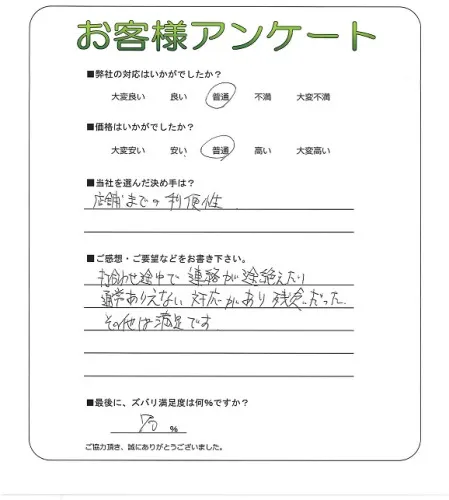 お客様アンケート
■弊社の対応はいかがでしたか？
大変良い 良い 普通 不満 大変不満
■価格はいかがでしたか？
大変安い 安い 普通 高い 大変高い
■当社を選んだ決め手は？
店舗までの利便性
■ご感想・ご要望などをお書き下さい。
打合わせ途中で連絡が途絶えたり
通常ありえない対応があり残念だった。
その他は満足です
■最後に、ズバリ満足度は何％ですか？
70 ％
ご協力頂き、誠にありがとうございました。